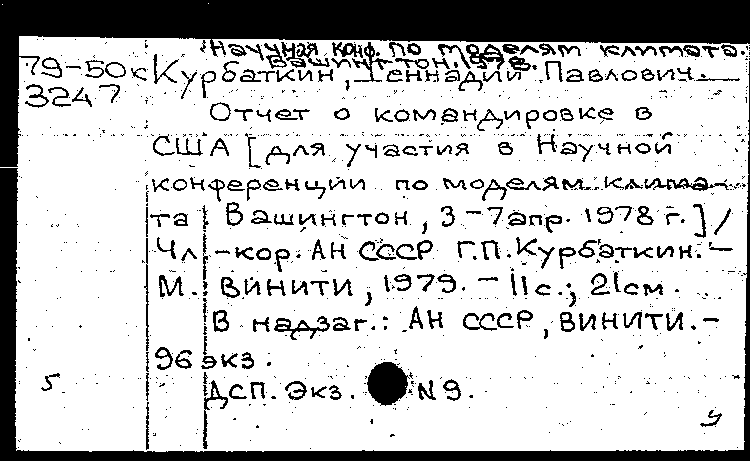 Научная конф. по моделям климата.
Вашингтон. 1978.
79-50к Курбаткин, Геннадий Павлович.
3247
Отчет о командировке в
США [для участия в Научной
конференции по моделям клима-
та. Вашингтон, 3-7 апр. 1978 г.] /
Чл.-кор. АН СССР Г.П. Курбаткин. —
М.: ВИНИТИ, 1979. — 11 с.; 21 см.
В надзаг.: АН СССР, ВИНИТИ. —
96 экз.
5 ДСП. Экз. N 9.